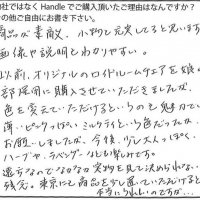 社ではなく Handle でご購入頂いたご理由はなんですか？
の他ご自由にお書き下さい。
商品が素敵、小物も充実してると思います
画像や説明もわかりやすい。
以前、オリジナルのロイドルームチェアを娘の
部屋用に購入させていただきましたが、
色を変えていただけるというのも魅力で
薄いピンクっぽいミルクティという色だったか、
お願いしましたが、今後、少し大人っぽく、
ハーブや、ラベンダーなども素敵です。
遠方なのでなかなか実物を見て決められない
残念。東京にも商品を少し置いていただけると
本当にうれしいのですが…